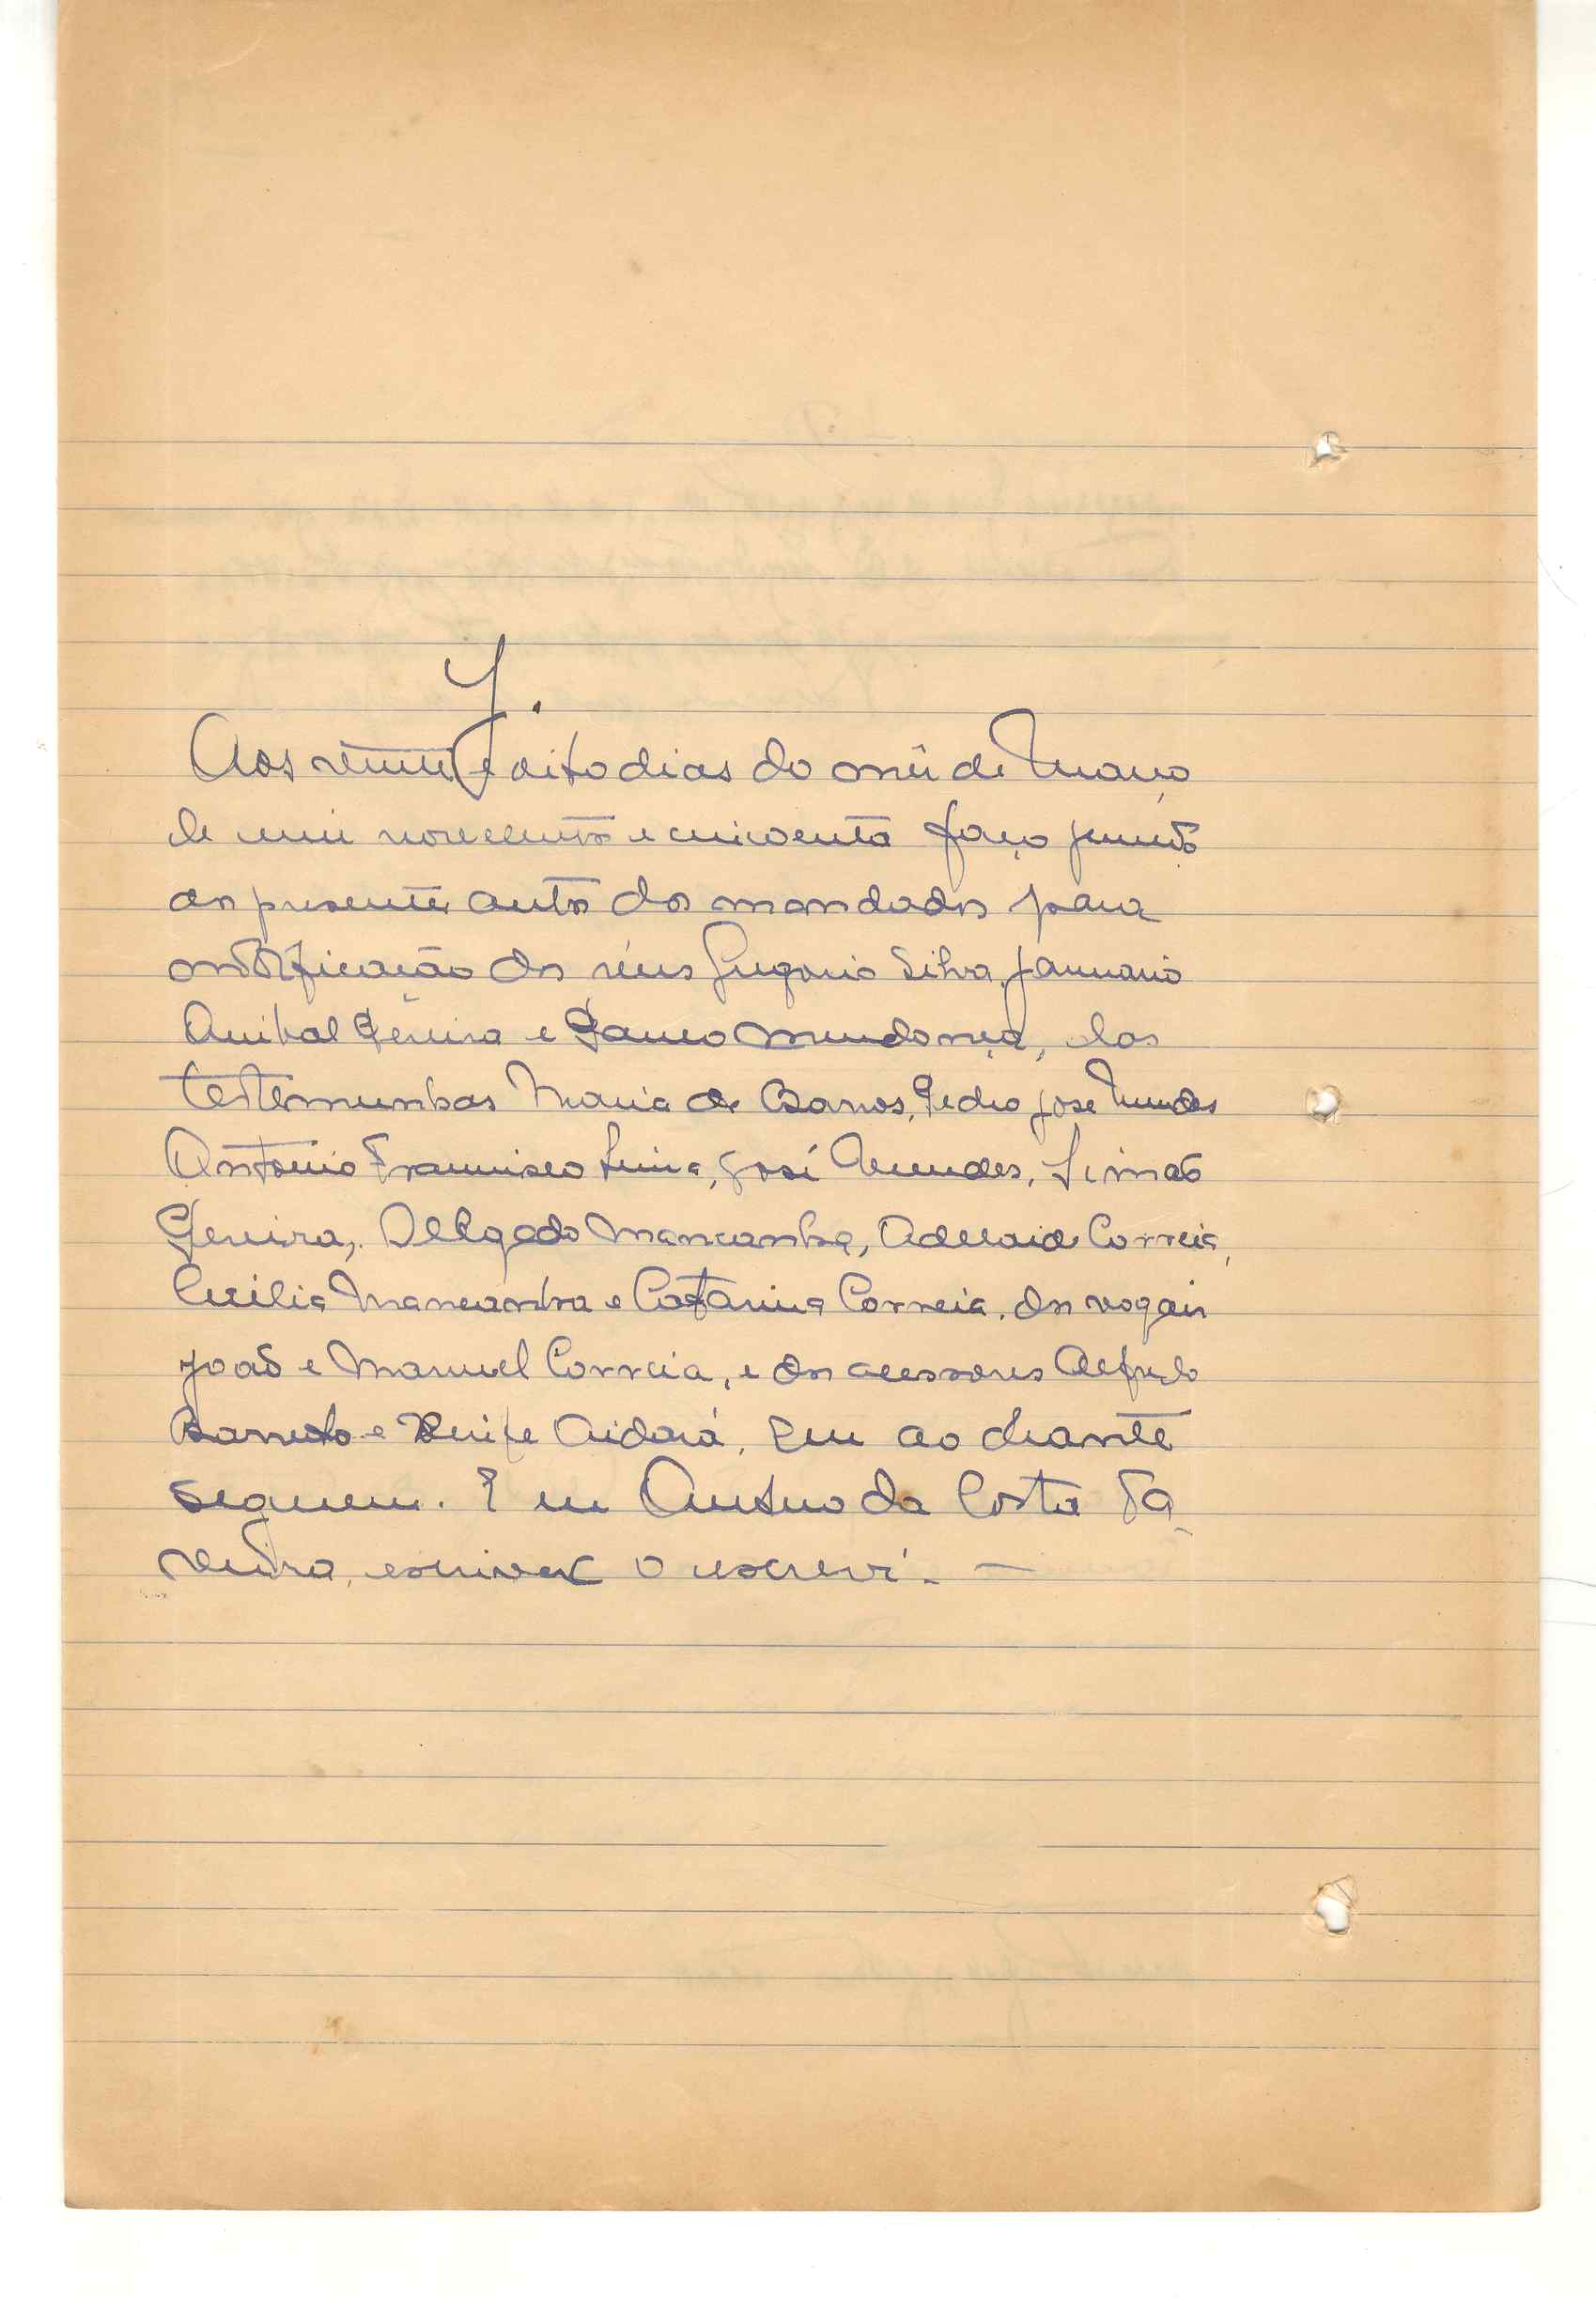 J.
Aos vinte e oito dias do mês de Março
de mil novecentos e cincoenta faço junto
aos presentes autos dos mandados para
notificação dos réus Gregorio Silva, Januario
Anibal Pereira e Paulo Mendonça, das
testemunhas Maria de Barros, Pedro José Mendes
António Francisco Lima, José Mendes, Simão
Pereira, Delgado Mancanha, Adelaide Correia,
Cecilia Mancanha e Catarina Correia, dos vogais
João e Manuel Correia, e dos acessores Alfredo
Barreto e Aidará, que ao deante
seguem. E eu da Costa Ta
veira, escrivão o escrevi. —